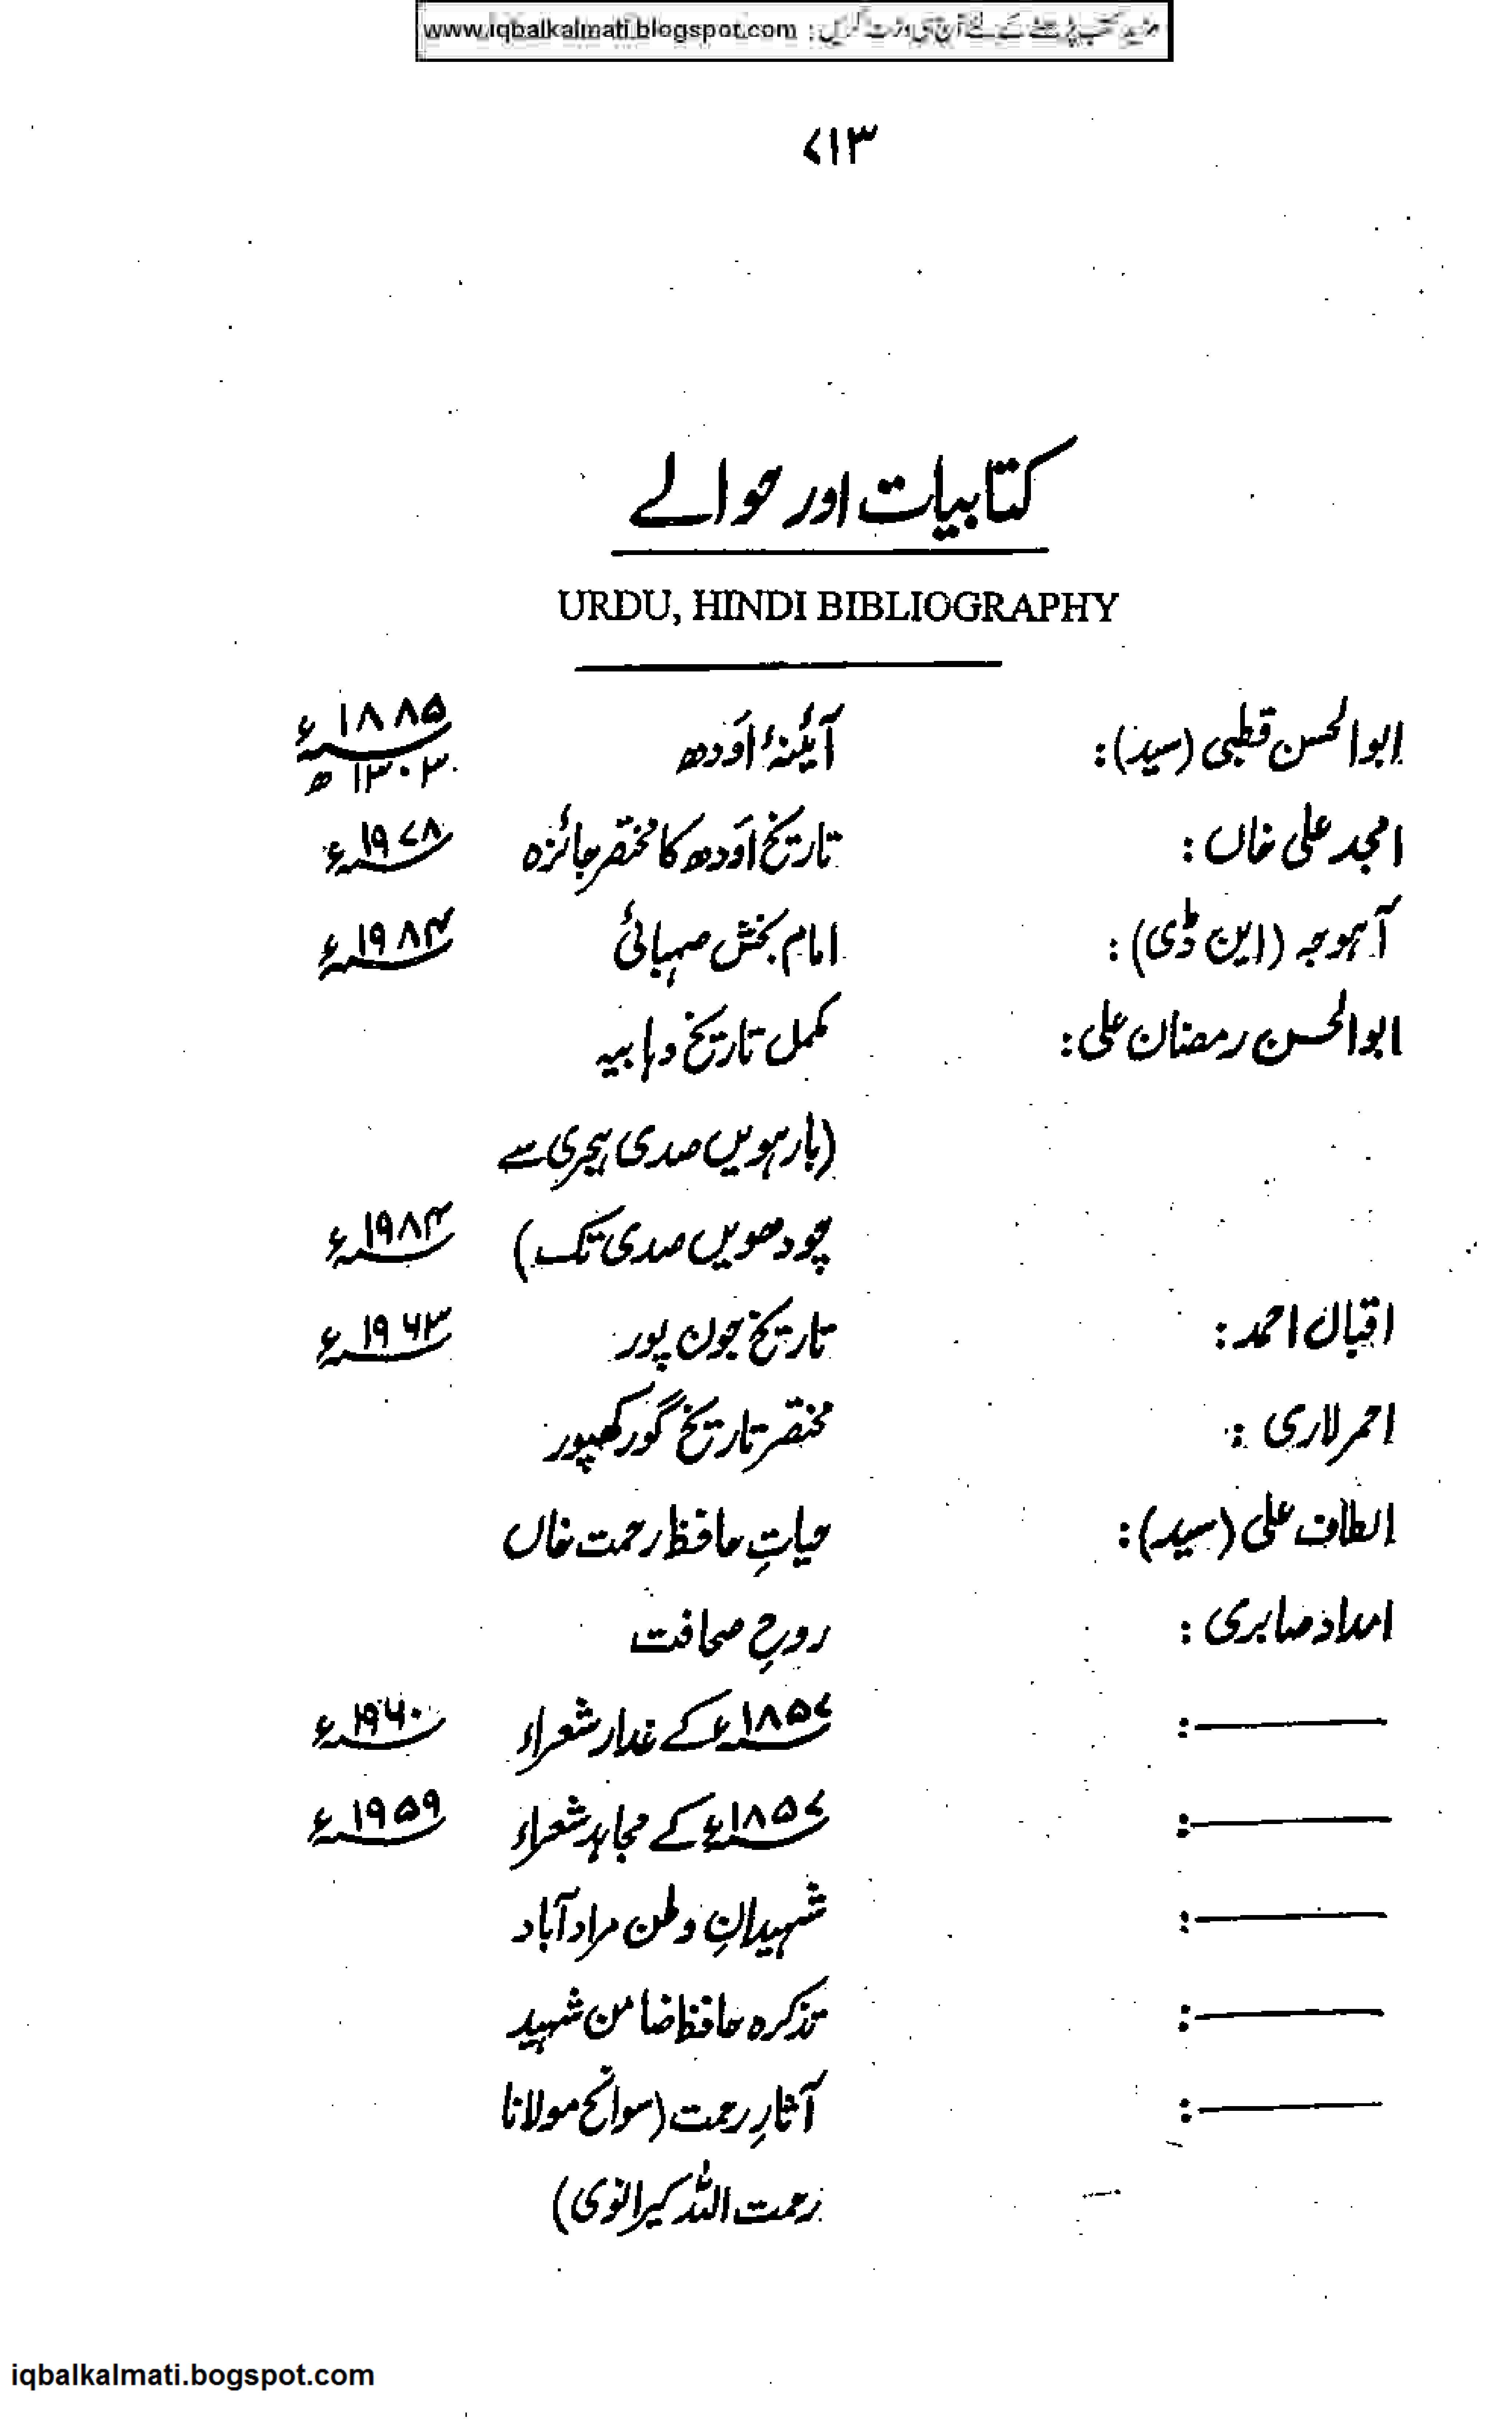 مزید کتب پڑھنے کے لئے آج ہی وزٹ کریں : www.iqbalkalmati.blogspot.com
۷۱۳
کتابیات اور حوالے
URDU, HINDI BIBLIOGRAPHY
ابوالحسن قطبی (سید): آئینۂ اَودھ ۱۸۸۵ء
۱۳۰۳ھ
امجد علی خاں: تاریخ اَودھ کا مختصر جائزہ ۱۹۷۸ء
آہوجہ (این ڈی): امام بخش صہبائی ۱۹۸۴ء
ابوالحسن رمضان علی: مکمل تاریخ وہابیہ
(بارہویں صدی ہیجری سے
چودھویں صدی تک) ۱۹۸۴ء
اقبال احمد: تاریخ جون پور ۱۹۶۳ء
احمر لاری: مختصر تاریخ گورکھپور
الطاف علی (سید): حیاتِ حافظ رحمت خاں
امداد صابری: روحِ صحافت
———: ۱۸۵۷ء کے غدار شعراء ۱۹۶۰ء
———: ۱۸۵۷ء کے مجاہد شعراء ۱۹۵۹ء
———: شہیدانِ وطن مراد آباد
———: تذکرہ حافظ ضامن شہید
———: آثارِ رحمت (سوانح مولانا
رحمت اللہ کیرانوی)
iqbalkalmati.bogspot.com